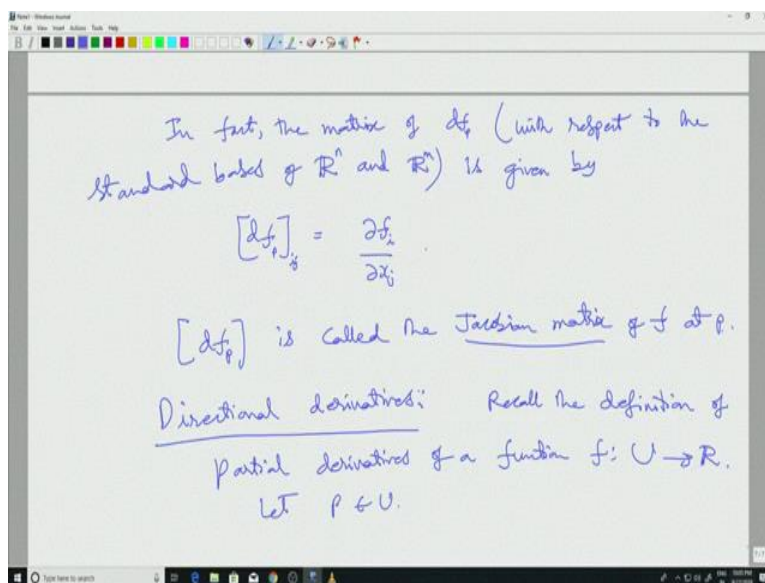 Note1 - Windows Journal
File Edit View Insert Actions Tools Help
In fact, the matrix of df_p (with respect to the
standard bases of ℝ^n and ℝ^m) is given by
[df_p]_ij = ∂f_i / ∂x_j .
[df_p] is called the Jacobian matrix of f at p.
Directional derivatives: Recall the definition of
partial derivatives of a function f: U → ℝ.
Let p ∈ U.
Type here to search